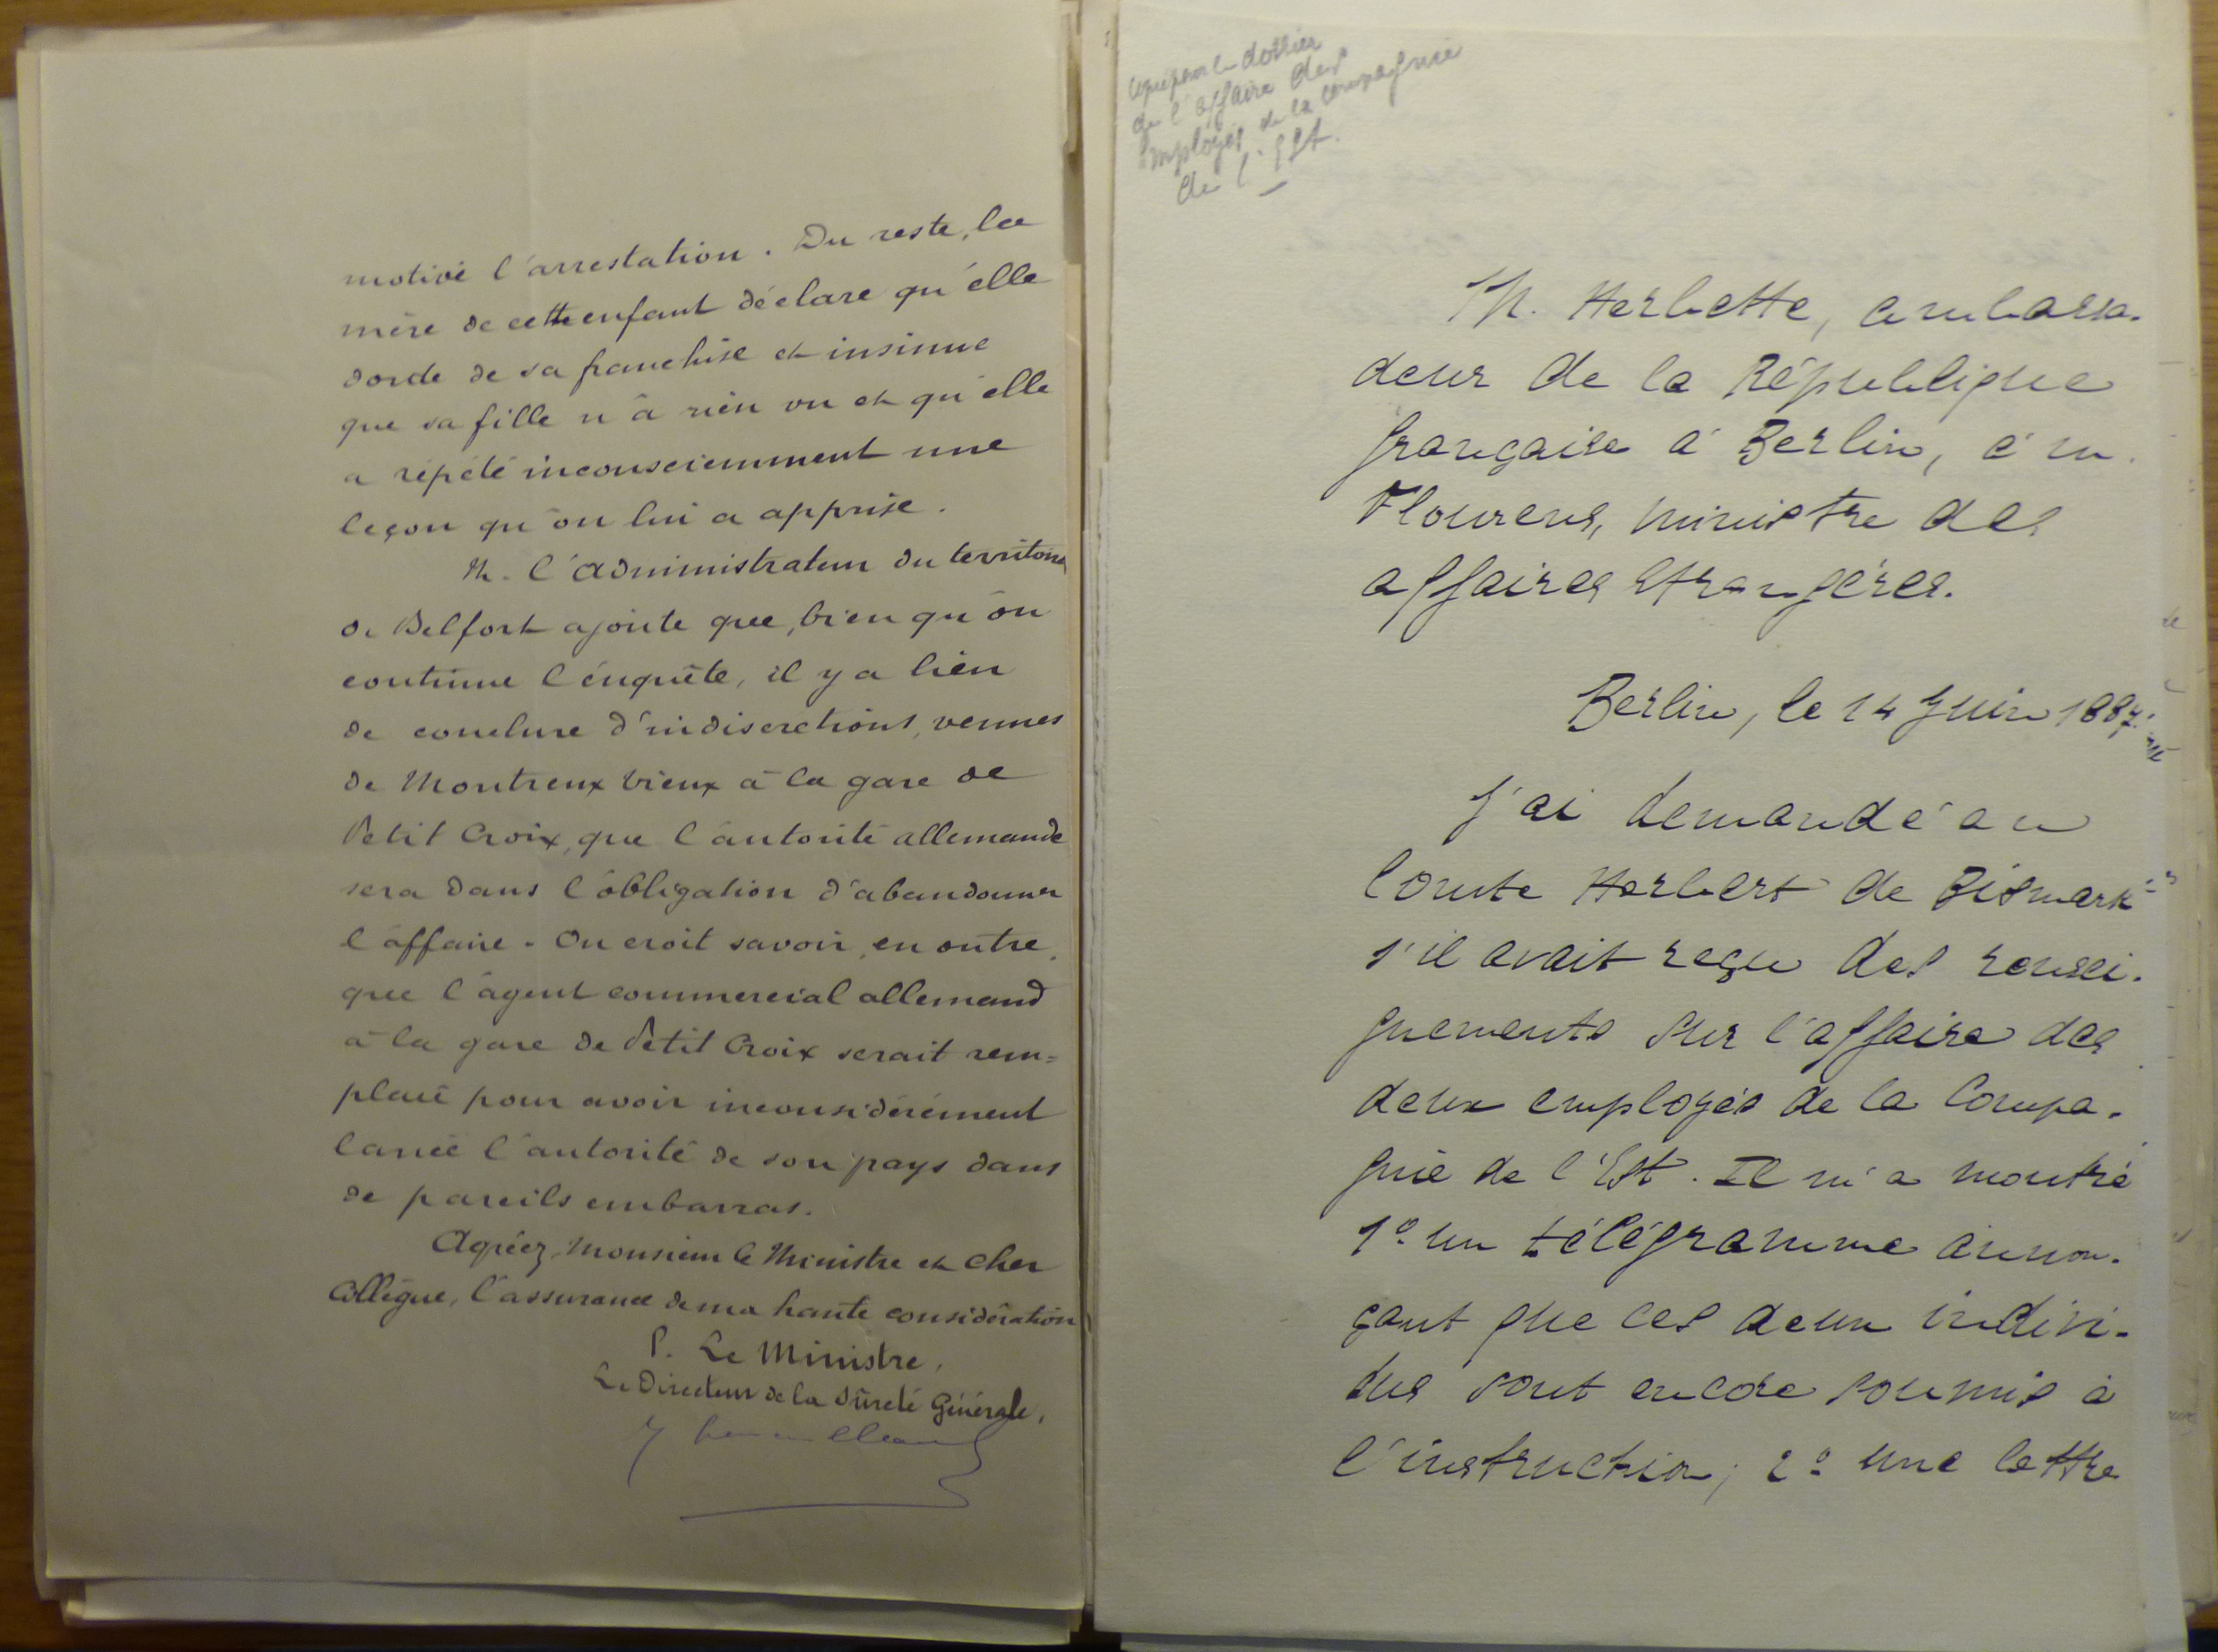 motivé l'arrestation. Du reste, la
mère de cette enfant déclare qu'elle
doute de sa franchise et insinue
que sa fille n'a rien vu et qu'elle
a répété inconsciemment une
leçon qu'on lui a apprise.
M. l'administrateur du territoire
de Belfort ajoute que, bien qu'on
continue l'enquête, il y a lieu
de conclure d'indiscrétions, venues
de Montreux vieux à la gare de
Petit Croix, que l'autorité allemande
sera dans l'obligation d'abandonner
l'affaire. On croit savoir, en outre,
que l'agent commercial allemand
à la gare de Petit Croix serait rem=
placé pour avoir inconsidérément
lancé l'autorité de son pays dans
de pareils embarras.
Agréez, Monsieur le Ministre et cher
Collègue, l'assurance de ma haute considération
P. Le Ministre,
Le Directeur de la Sûreté Générale,
dossier
de l'affaire des
employés de la Compagnie
de l'Est.
M. Herbette, ambassa-
deur de la République
française à Berlin, à M.
Flourens, ministre des
affaires étrangères.
Berlin, le 14 Juin 1887.
J'ai demandé au
Comte Herbert de Bismark
s'il avait reçu des rensei-
gnements sur l'affaire des
deux employés de la Compa-
gnie de l'Est. Il m'a montré
1º un télégramme annon-
çant que ces deux indivi-
dus sont encore soumis à
l'instruction; 2º une lettre